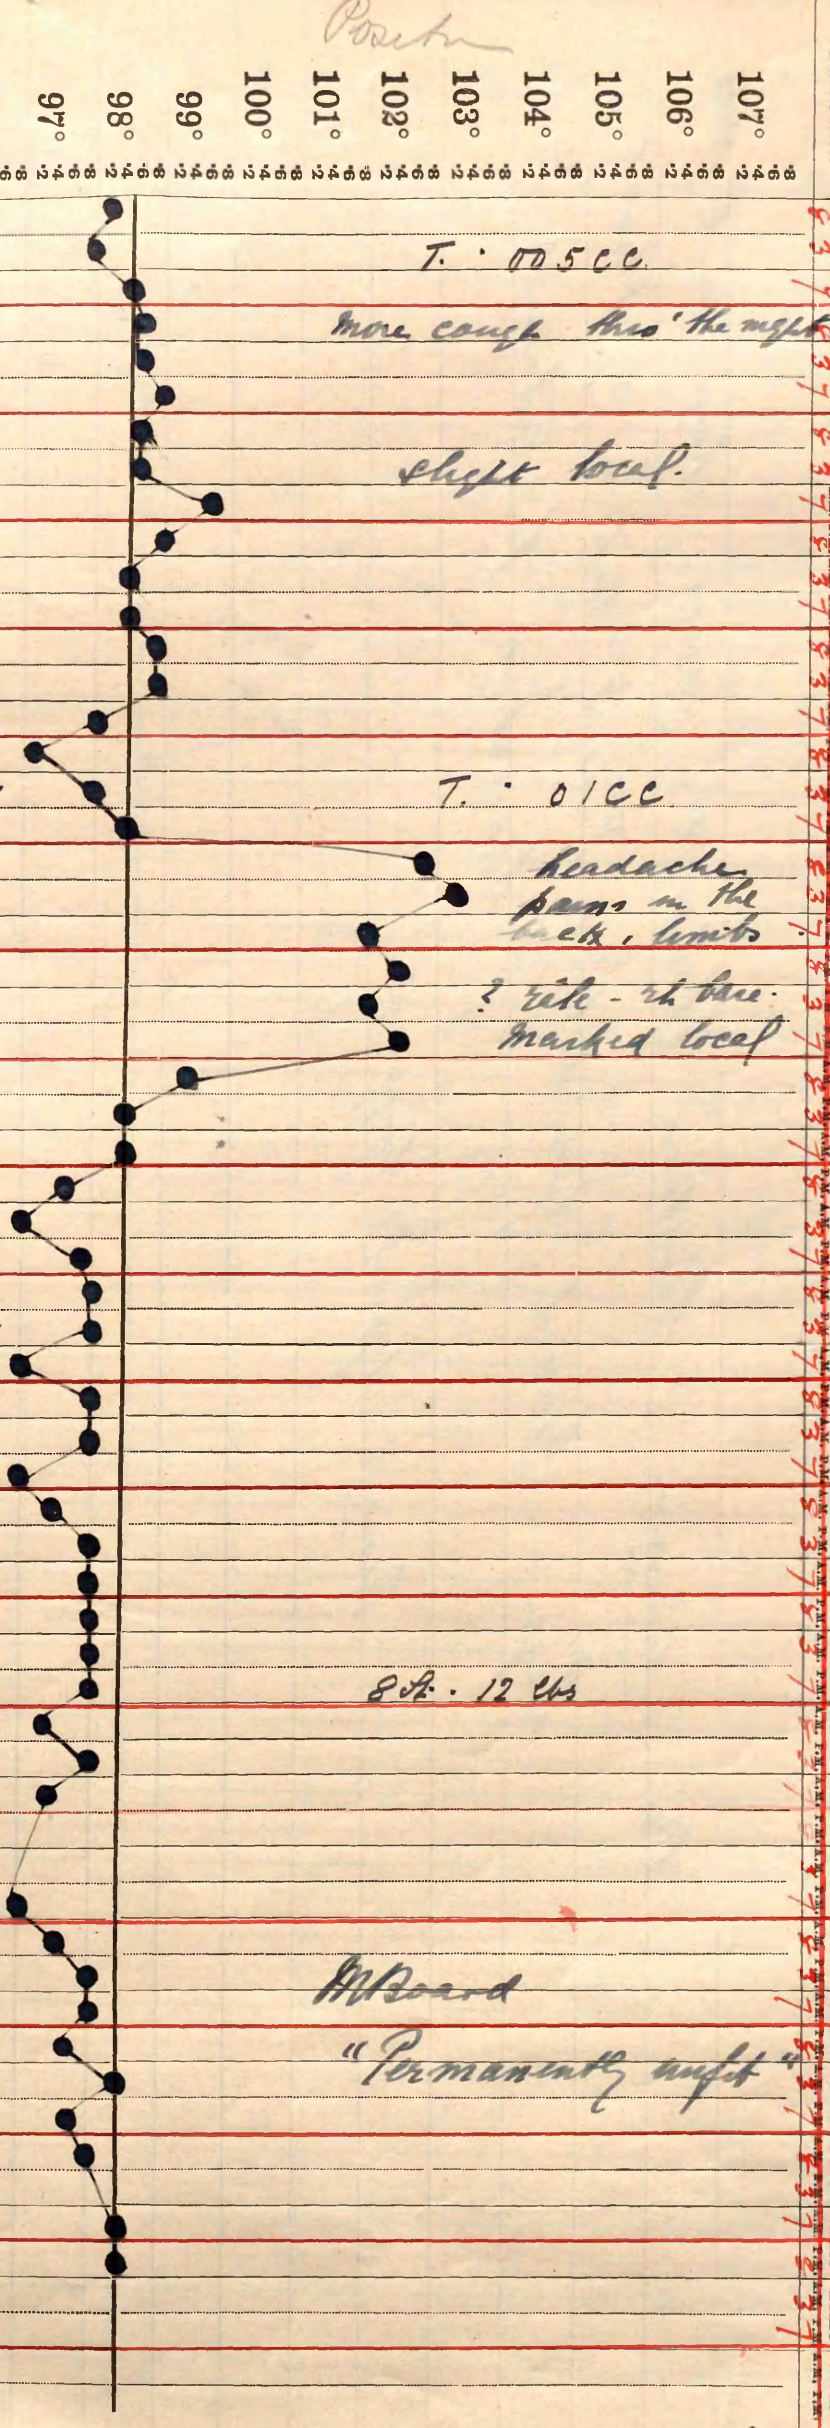 97° 98° 99° 100° 101° 102° 103° 104° 105° 106° 107°
T. · 005 CC.
More cough thro' the night
slight local.
T. · 01 CC
headache
pains in the
back, limbs
? râle - rt base.
Marked local
8 st. 12 lbs
M Board
"Permanently unfit"